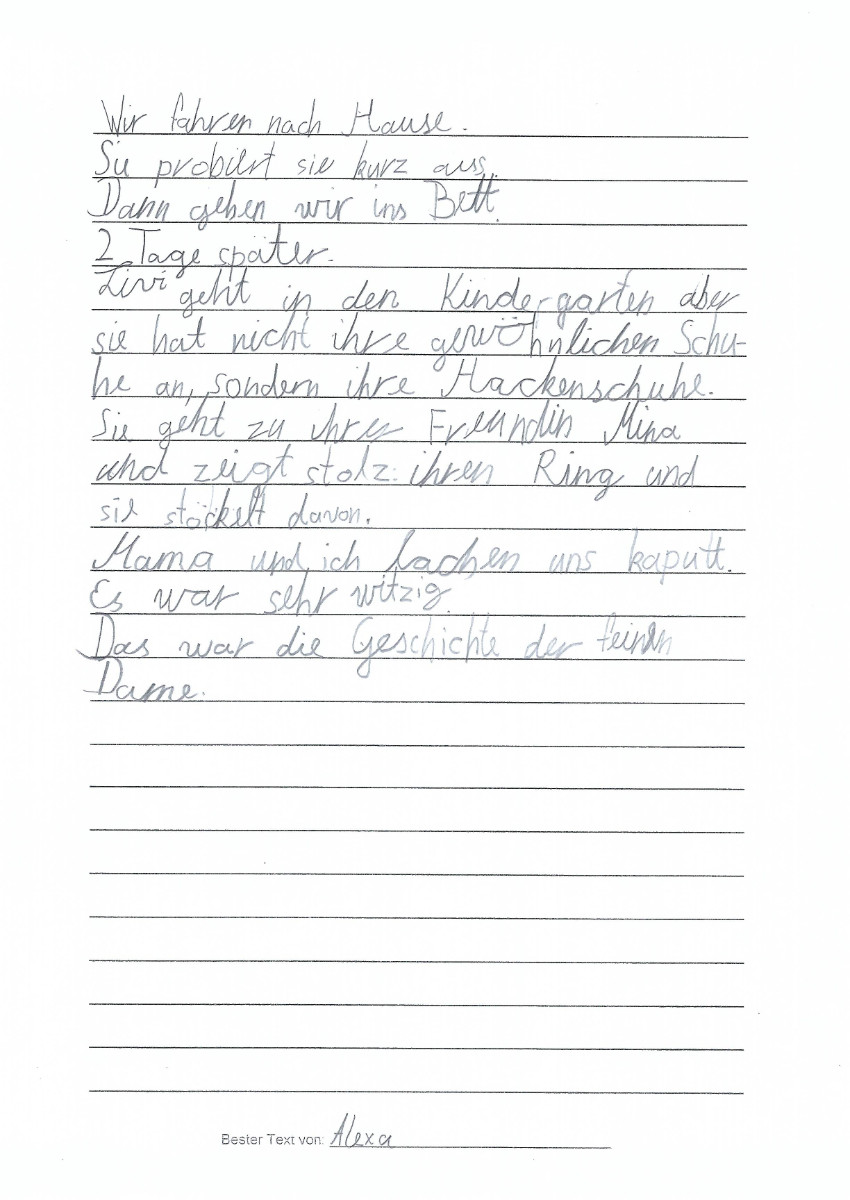 Wir fahren nach Hause.
Sie probiert sie kurz aus.
Dann gehen wir ins Bett.
2 Tage später.
Livi geht in den Kindergarten aber
sie hat nicht ihre gewöhnlichen Schu-
he an, sondern ihre Hackenschuhe.
Sie geht zu ihrer Freundin Mina
und zeigt stolz ihren Ring und
sie stöckelt davon.
Mama und ich lachen uns kaputt.
Es war sehr witzig.
Das war die Geschichte der feinen
Dame.
Bester Text von: Alexa